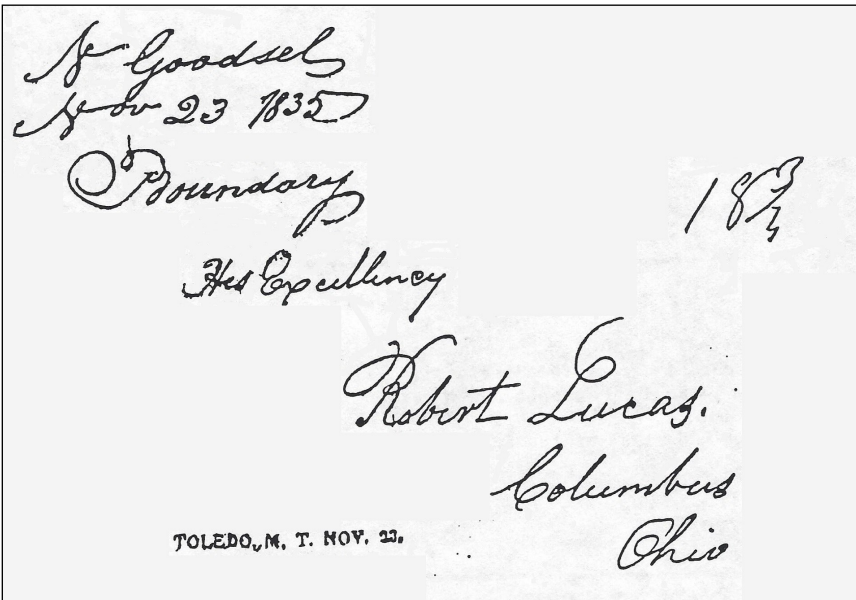 N Goodsel
Nov 23 1835
Boundary
18 3/4
His Excellency
Robert Lucas.
Columbus
Ohio
TOLEDO, M. T. NOV. 23.